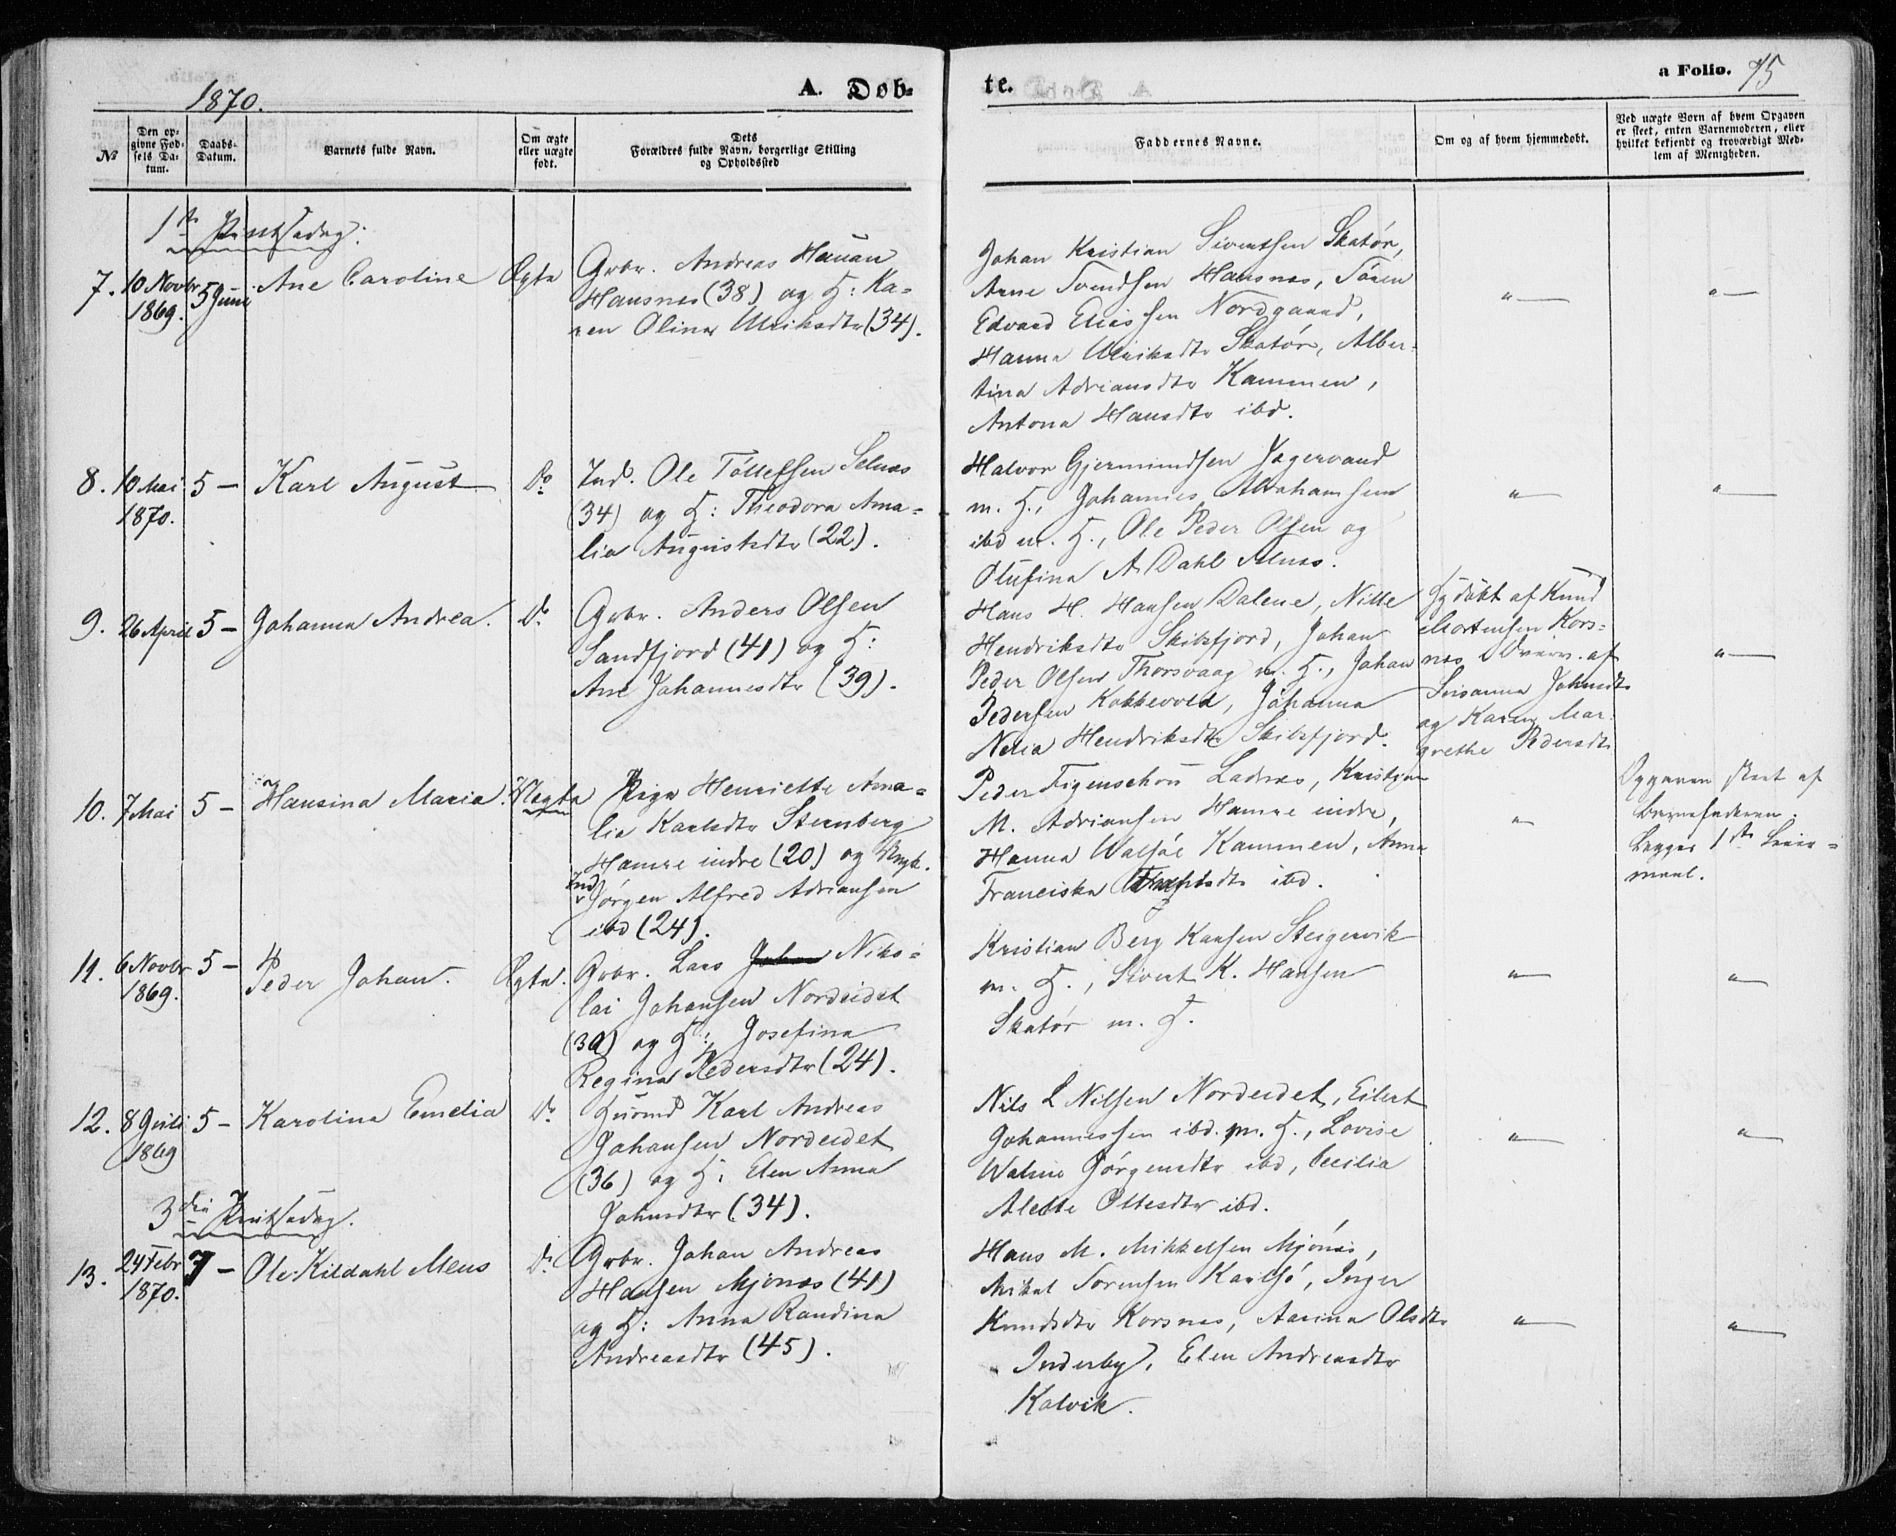 1870.
A. Døb-
te.
a Folio. 75
№
Den op-
givne Fød-
sels Da-
tum.
Daabs-
Datum.
Barnets fulde Navn.
Om ægte
eller uægte
født.
Dets
Forældres fulde Navn, borgerlige Stilling
og Opholdssted
Faddernes Navne.
Om og af hvem hjemmedøbt.
Ved uægte Børn af hvem Opgaven
er skeet, enten Barnemoderen, eller
hvilket bekjendt og troværdigt Med-
lem af Menigheden.
1ste Pintsedag:
7. 10 Novbr
1869. 5 Juni
Ane Caroline
Ægte
Gbr. Andreas Hauan
Hansnes (38) og H: Ka-
ren Olina Ulriksdtr (34).
Johan Kristian Sivertsen Skatør,
Arne Svendsen Hansnes, Sören
Edvard Eliassen Nordgaard,
Hanna Ulriksdtr Skatør, Alber-
tina Adriansdtr Kammen,
Antona Hansdtr ibd.
" "
8. 10 Mai
1870. 5 –
Karl August
Do
Ind. Ole Tollefsen Selnæs
(34) og H: Theodora Ama-
lia Augustsdtr (22).
Halvor Gjermundsen Jægervand
m. H., Johannes Abrahamsen
ibd m. H., Ole Peder Olsen og
Olufina A. Dahl Selnæs.
" "
9. 26 April 5 –
Johanna Andrea.
Do
Gbr. Anders Olsen
Sandfjord (41) og H:
Ane Johannesdtr (39).
Hans H. Hansen Dalene, Nille
Hendriksdtr Skibsfjord, Johan
Peder Olsen Thorsvaag m. H., Johan
Pedersen Kokkevold, Johanna
Nelia Hendriksdtr Skibsfjord.
Hjdöbt af Knud
Mortensen Kors-
næs Overv. af
Susanna Johnsdtr
og Karen Mar-
grethe Pedersdtr
"
10. 7 Mai 5 –
Hansina Maria.
Uægte
Pige Henriette Ama-
lie Karlsdtr Sternberg
Hamre indre (20) og Ungk.
Ind. Jørgen Alfred Adriansen
ibd (24).
Peder Figenschou Ladnæs, Kristian
M. Adriansen Hamre indre,
Hanna Walsøe Kammen, Anna
Franciska ibd.
"
Opgaven skeet af
Barnefaderen.
Begges 1ste Leier-
maal.
11. 6 Novbr
1869. 5 –
Peder Johan.
Ægte.
Gbr. Lars Johan Niko-
lai Johansen Nordeidet
(30) og H: Josefina
Regina Pedersdtr (24).
Kristian Berg Hansen Steigervik
m. H., Sivert K. Hansen
Skatør m. H.
" "
12. 8 Juli
1869 5 –
Karolina Emelia
Do
Huusmd Karl Andreas
Johansen Nordeidet
(36) og H: Elen Anna
Johnsdtr (34).
Nils L Nilsen Nordeidet, Eilert
Johannessen ibd. m. H., Lovise
Waline Jörgensdtr ibd, Cecilia
Alette Ottesdtr ibd.
" "
3die Pintsedag.
13. 24 Febr
1870. 7 –
Ole Kildahl Meus
Do
Gbr. Johan Andreas
Hansen Mjønæs (41)
og H: Anna Randina
Andreasdtr (45).
Hans M. Mikkelsen Mjönæs,
Mikal Sörensen Karlsö, Inger
Knudsdtr Korsnæs, Aarina Olsdtr
Inderby, Elen Andreasdtr
Kalvik.
" "